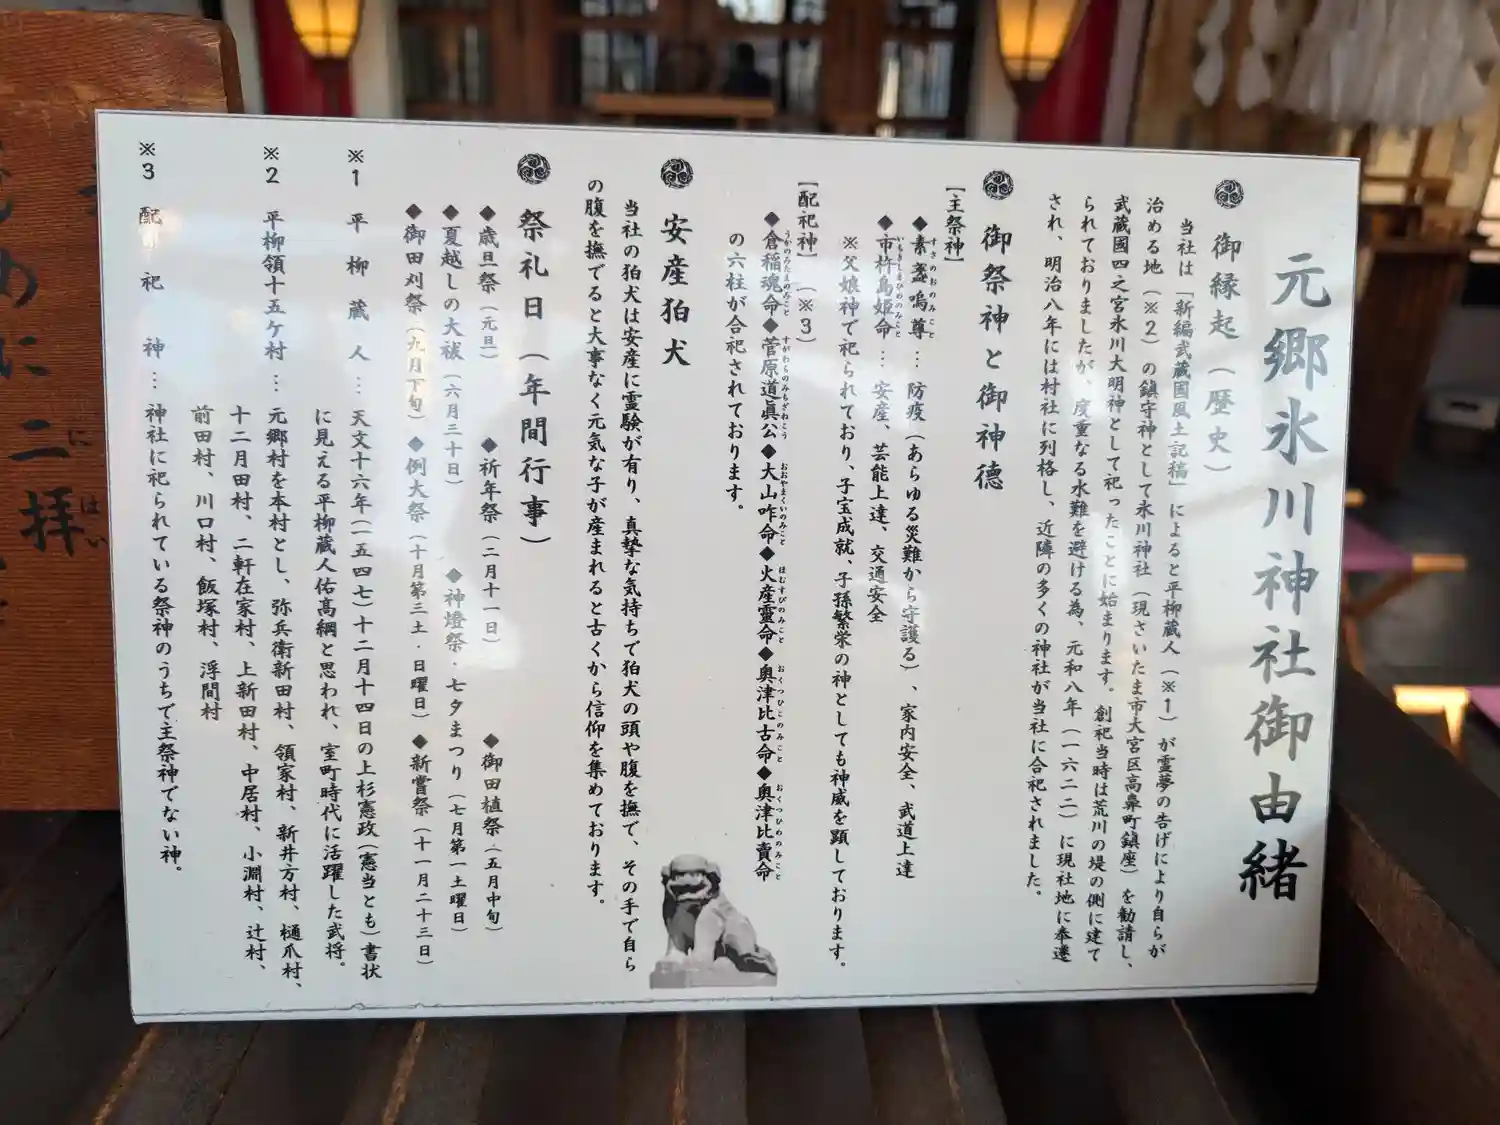 元郷氷川神社御由緒
御縁起（歴史）
当社は「新編武蔵國風土記稿」によると平柳蔵人（※1）が霊夢の告げにより自らが
治める地（※2）の鎮守神として氷川神社（現さいたま市大宮区高鼻町鎮座）を勧請し、
武蔵國四之宮氷川大明神として祀ったことに始まります。創祀当時は荒川の堤の側に建て
られておりましたが、度重なる水難を避ける為、元和八年（一六二二）に現社地に奉遷
され、明治八年には村社に列格し、近隣の多くの神社が当社に合祀されました。
御祭神と御神徳
【主祭神】
◆素盞嗚尊…防疫（あらゆる災難から守護る）、家内安全、武道上達
すさのおのみこと
◆市杵島姫命…安産、芸能上達、交通安全
いちきしまひめのみこと
※父娘神で祀られており、子宝成就、子孫繁栄の神としても神威を顕しております。
【配祀神】（※3）
◆倉稲魂命◆菅原道眞公◆大山咋命◆火産霊命◆奥津比古命◆奥津比賣命
うかのみたまのみこと すがわらのみちざねこう おおやまくいのみこと ほむすびのみこと おくつひこのみこと おくつひめのみこと
の六柱が合祀されております。
安産狛犬
当社の狛犬は安産に霊験が有り、真摯な気持ちで狛犬の頭や腹を撫で、その手で自ら
の腹を撫でると大事なく元気な子が産まれると古くから信仰を集めております。
祭礼日（年間行事）
◆歳旦祭（元旦） ◆祈年祭（二月十一日） ◆御田植祭（五月中旬）
◆夏越しの大祓（六月三十日） ◆神燈祭・七夕まつり（七月第一土曜日）
◆御田刈祭（九月下旬）◆例大祭（十月第三土・日曜日）◆新嘗祭（十一月二十三日）
※1 平柳蔵人…天文十六年（一五四七）十二月十四日の上杉憲政（憲当とも）書状
に見える平柳蔵人佑髙綱と思われ、室町時代に活躍した武将。
※2 平柳領十五ケ村…元郷村を本村とし、弥兵衛新田村、領家村、新井方村、樋爪村、
十二月田村、二軒在家村、上新田村、中居村、小淵村、辻村、
前田村、川口村、飯塚村、浮間村
※3 配祀神…神社に祀られている祭神のうちで主祭神でない神。
めに二拝
に
はい